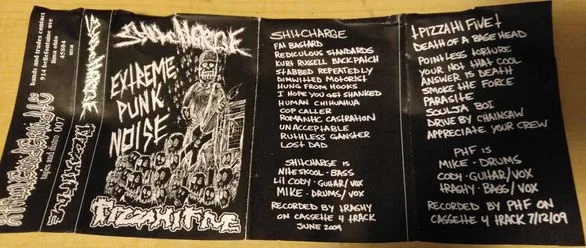 bands and trades contact
714 bellefontaine ave
lima ohio
45804
usa
tapes and distro 007
SHITCHARGE
PIZZAHIFIVE
SHITCHARGE
EXTREME
PUNK
NOISE
PIZZAHIFIVE
SHITCHARGE
FM BASTARD
REDICULOUS STANDARDS
KURT RUSSELL BACKPATCH
STABBED REPEATEDLY
DIMWITTED MOTORIST
HUNG FROM HOOKS
I HOPE YOU GET SHANKED
HUMAN CHIHUAHUA
COP CALLER
ROMANTIC CASTRATION
UNACCEPTABLE
RUTHLESS GANGSTER
LOST DAD
SHITCHARGE IS
NITESKOOL - BASS
LIL CODY - GUITAR/VOX
MIKE - DRUMS/VOX
RECORDED BY TRASHY
ON CASSETTE 4 TRACK
JUNE 2009
†PIZZAHIFIVE†
DEATH OF A BASEHEAD
POINTLESS TORTURE
YOUR NOT THAT COOL
ANSWER IS DEATH
SMOKE THE FORCE
PARASITE
SOULJA BOI
DRIVE BY CHAINSAW
APPRECIATE YOUR CREW
PHF IS
MIKE - DRUMS
CODY - GUITAR/VOX
TRASHY - BASS/VOX
RECORDED BY PHF ON
CASSETTE 4 TRACK 7/12/09